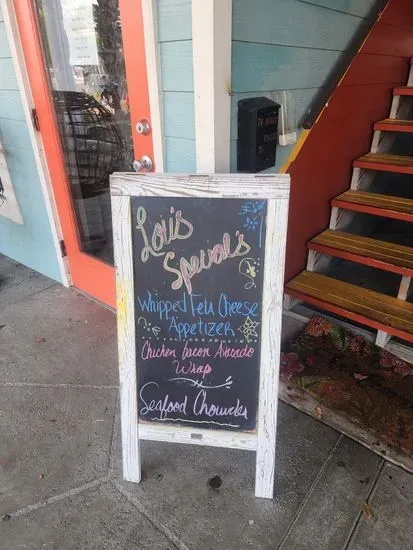 Lori's
Specials
Whipped Feta Cheese
Appetizer
Chicken Bacon Avocado
Wrap
Seafood Chowder